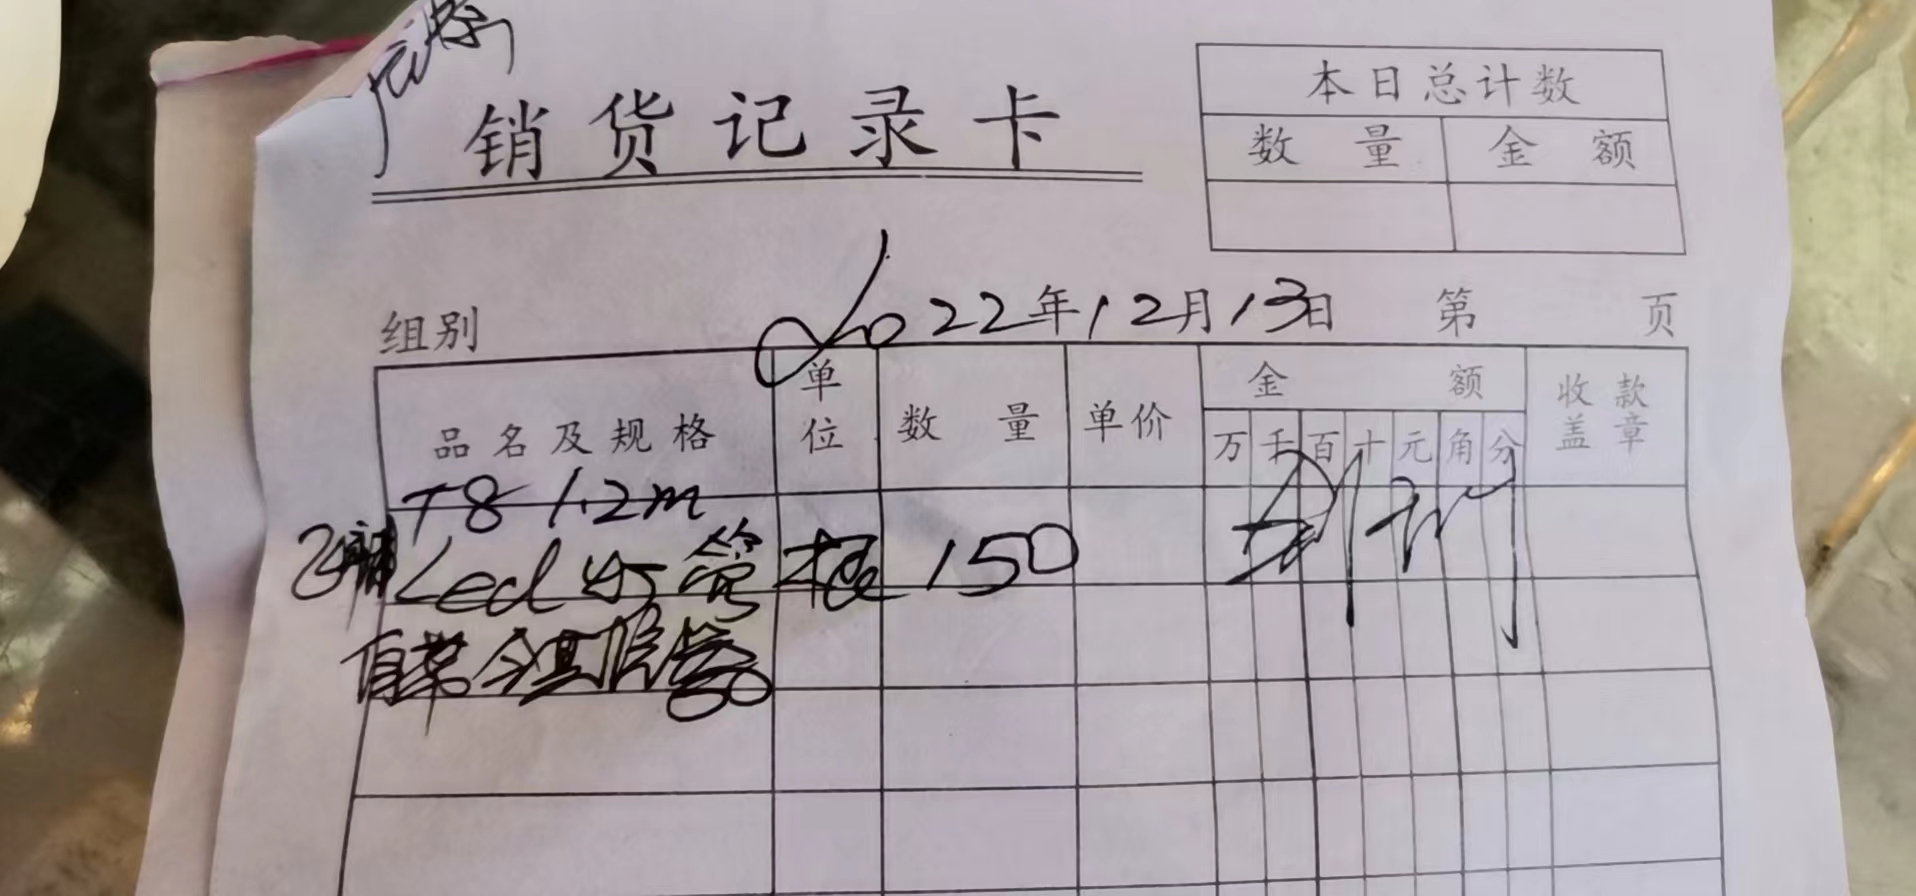 销货记录卡
本日总计数
数量 金额
组别 2022年12月13日 第 页
品名及规格 单位 数量 单价 金额 收款盖章
万 千 百 十 元 角 分
T8 1.2m
Led 灯管 根 150